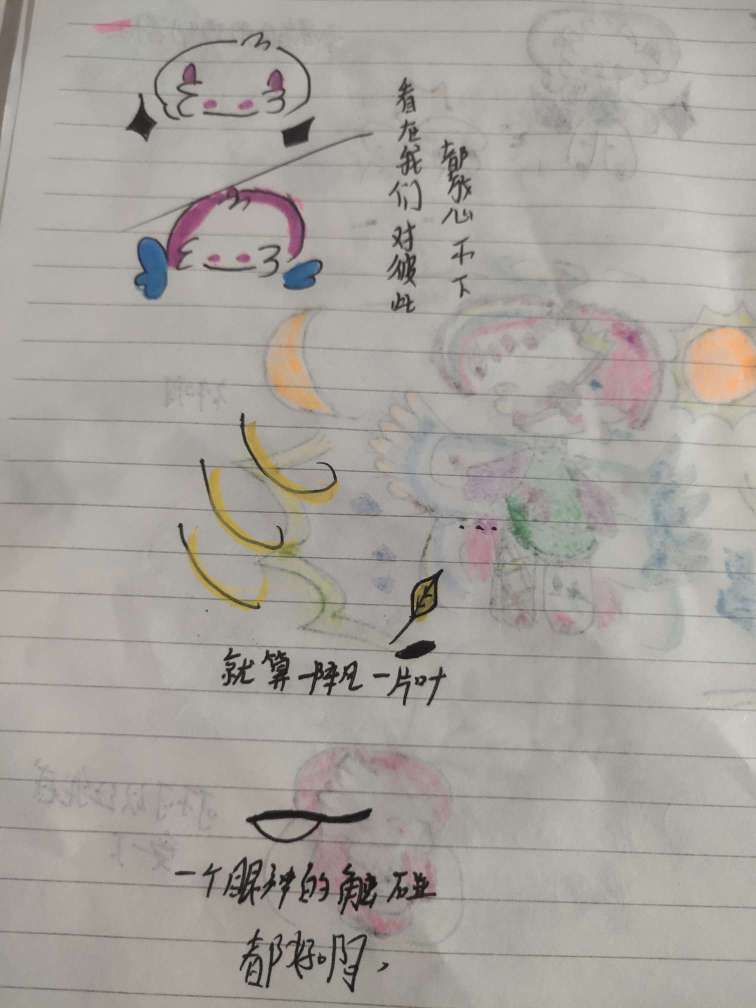 看在我们对彼此
都放心不下
就算一阵风一片叶
一个眼神的触碰
都好啊,